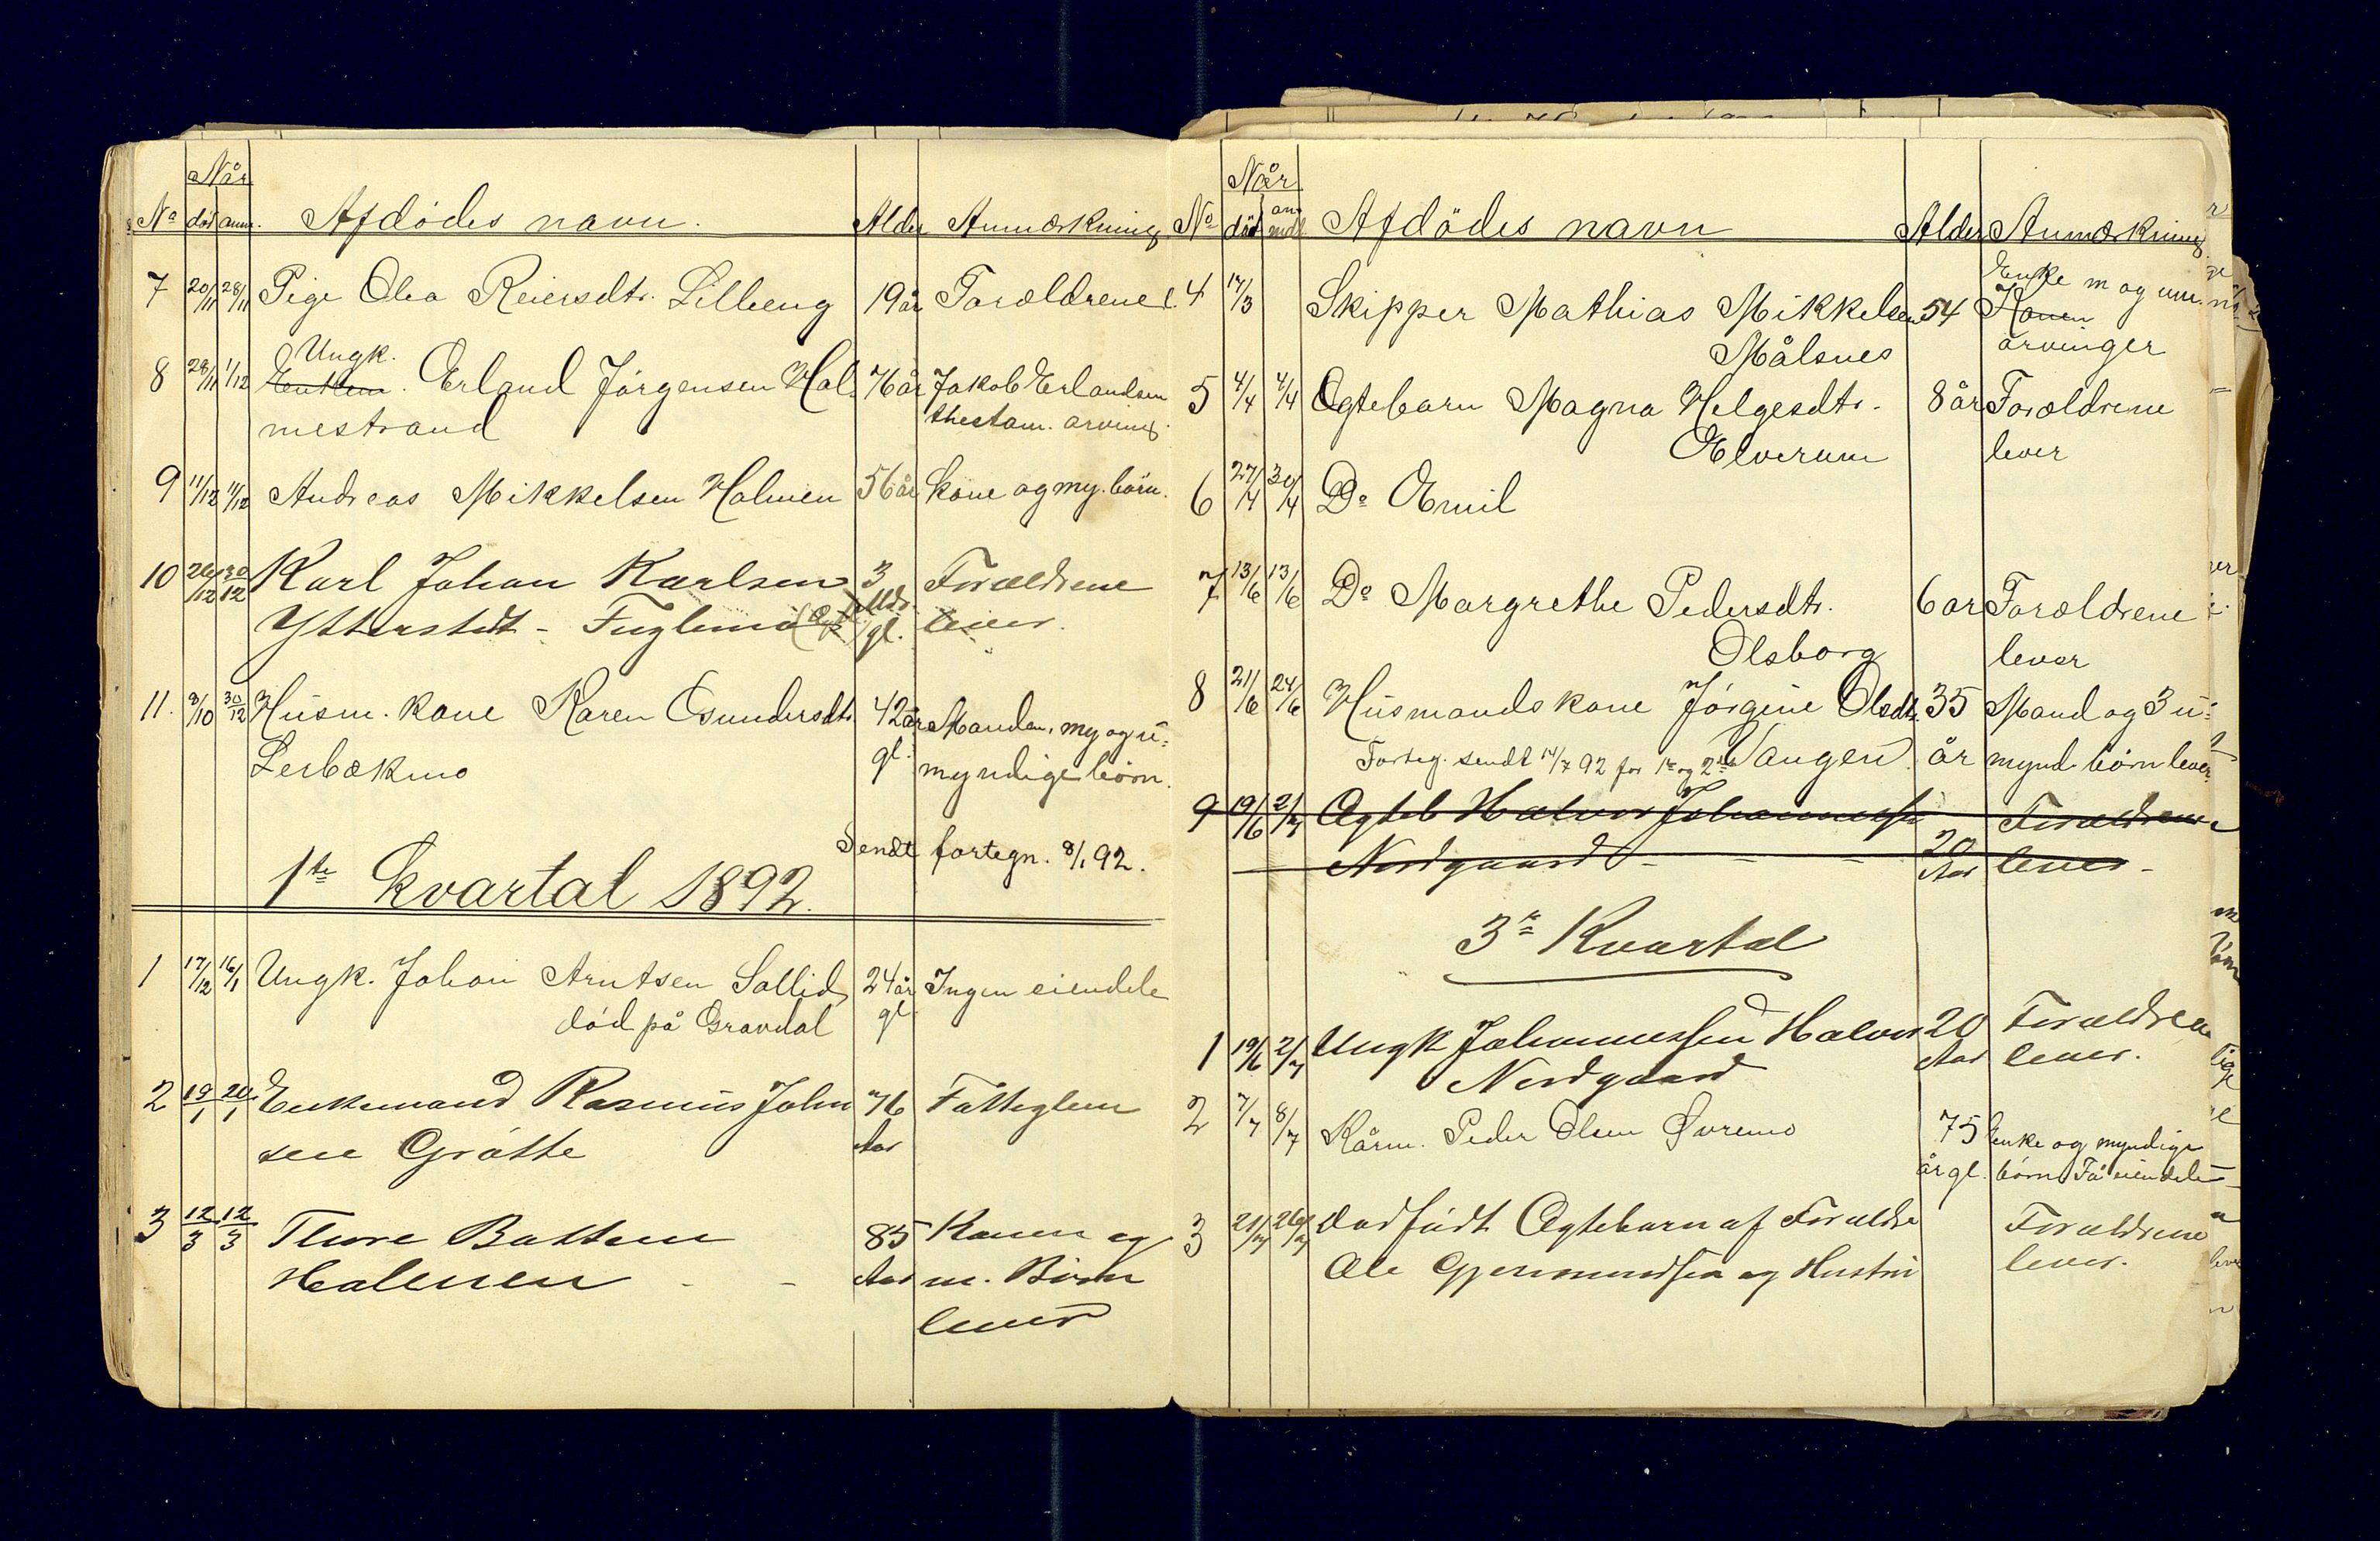 Når
No død anm. Afdödes navn. Alder Anmærkning
7 20/11 28/11 Pige Olea Reiersdtr. Lilleeng 19 år Forældrene l.
Ungk.
8 28/11 1/12 Enkem. Erland Jörgensen Hol- 76 år Jakob Erlandsen
mestrand thestam. arving.
9 11/12 11/12 Andreas Mikkelsen Holmen 56 år Kone og my. börn.
10 26/12 30/12 Karl Johan Karlsen 3 Forældrene
Ytterstedt - Fuglemo gl. lever.
11. 8/10 30/12 Husm. kone Karen Osmundersdtr. 42 år Manden, my og u-
Lerbækmo gl. myndige börn.
Sendt fortegn. 8/1 92.
1ste Kvartal 1892.
1 17/12 16/1 Ungk. Johan Arntsen Sollid, 24 år Ingen eiendele
död på Gravdal gl.
2 19/1 20/1 Enkemand Rasmus John 76 Fattiglem
sen Gråtte Aar
3 12/3 12/3 Thore Bottem 85 Konen og
Holmen - - Aar m. Börn
lever
Når
No död anmeldt Afdödes navn Alder Anmærkning
Enke m og um.
4 17/3 Skipper Mathias Mikkelsen 54 Konen
Målsnes arvinger
5 4/4 4/4 Egtebarn Magna Helgesdtr. 8 år Forældrene
Elverum lever
6 27/4 30/4 Do Emil
7 13/6 13/6 Do Margrethe Pedersdtr. 6 ar Forældrene
Olsborg lever
8 21/6 24/6 Husmandskone Jörgine Olsdtr. 35 Mand og 3 u-
Forteg. sendt 14/7 92 for 1ste og 2det Vangen år mynd. börn lever.
9 19/6 2/7 Ægteb Halvor Johannessen Forældrene
Nordgaard - - - 20 Aar lever -
3die Kvartal
1 19/6 2/7 Ungk Johannessen Halvor 20 Forældrene
Nordgaard Aar lever.
2 7/7 8/7 Kårm. Peder Olsen Øvremo 75 Enke og myndige
år gl. börn Få eiendele
3 21/7 26/7 Dødfödt Ægtebarn af Forældre Forældrene
Ole Gjermundsen og Hustru lever.